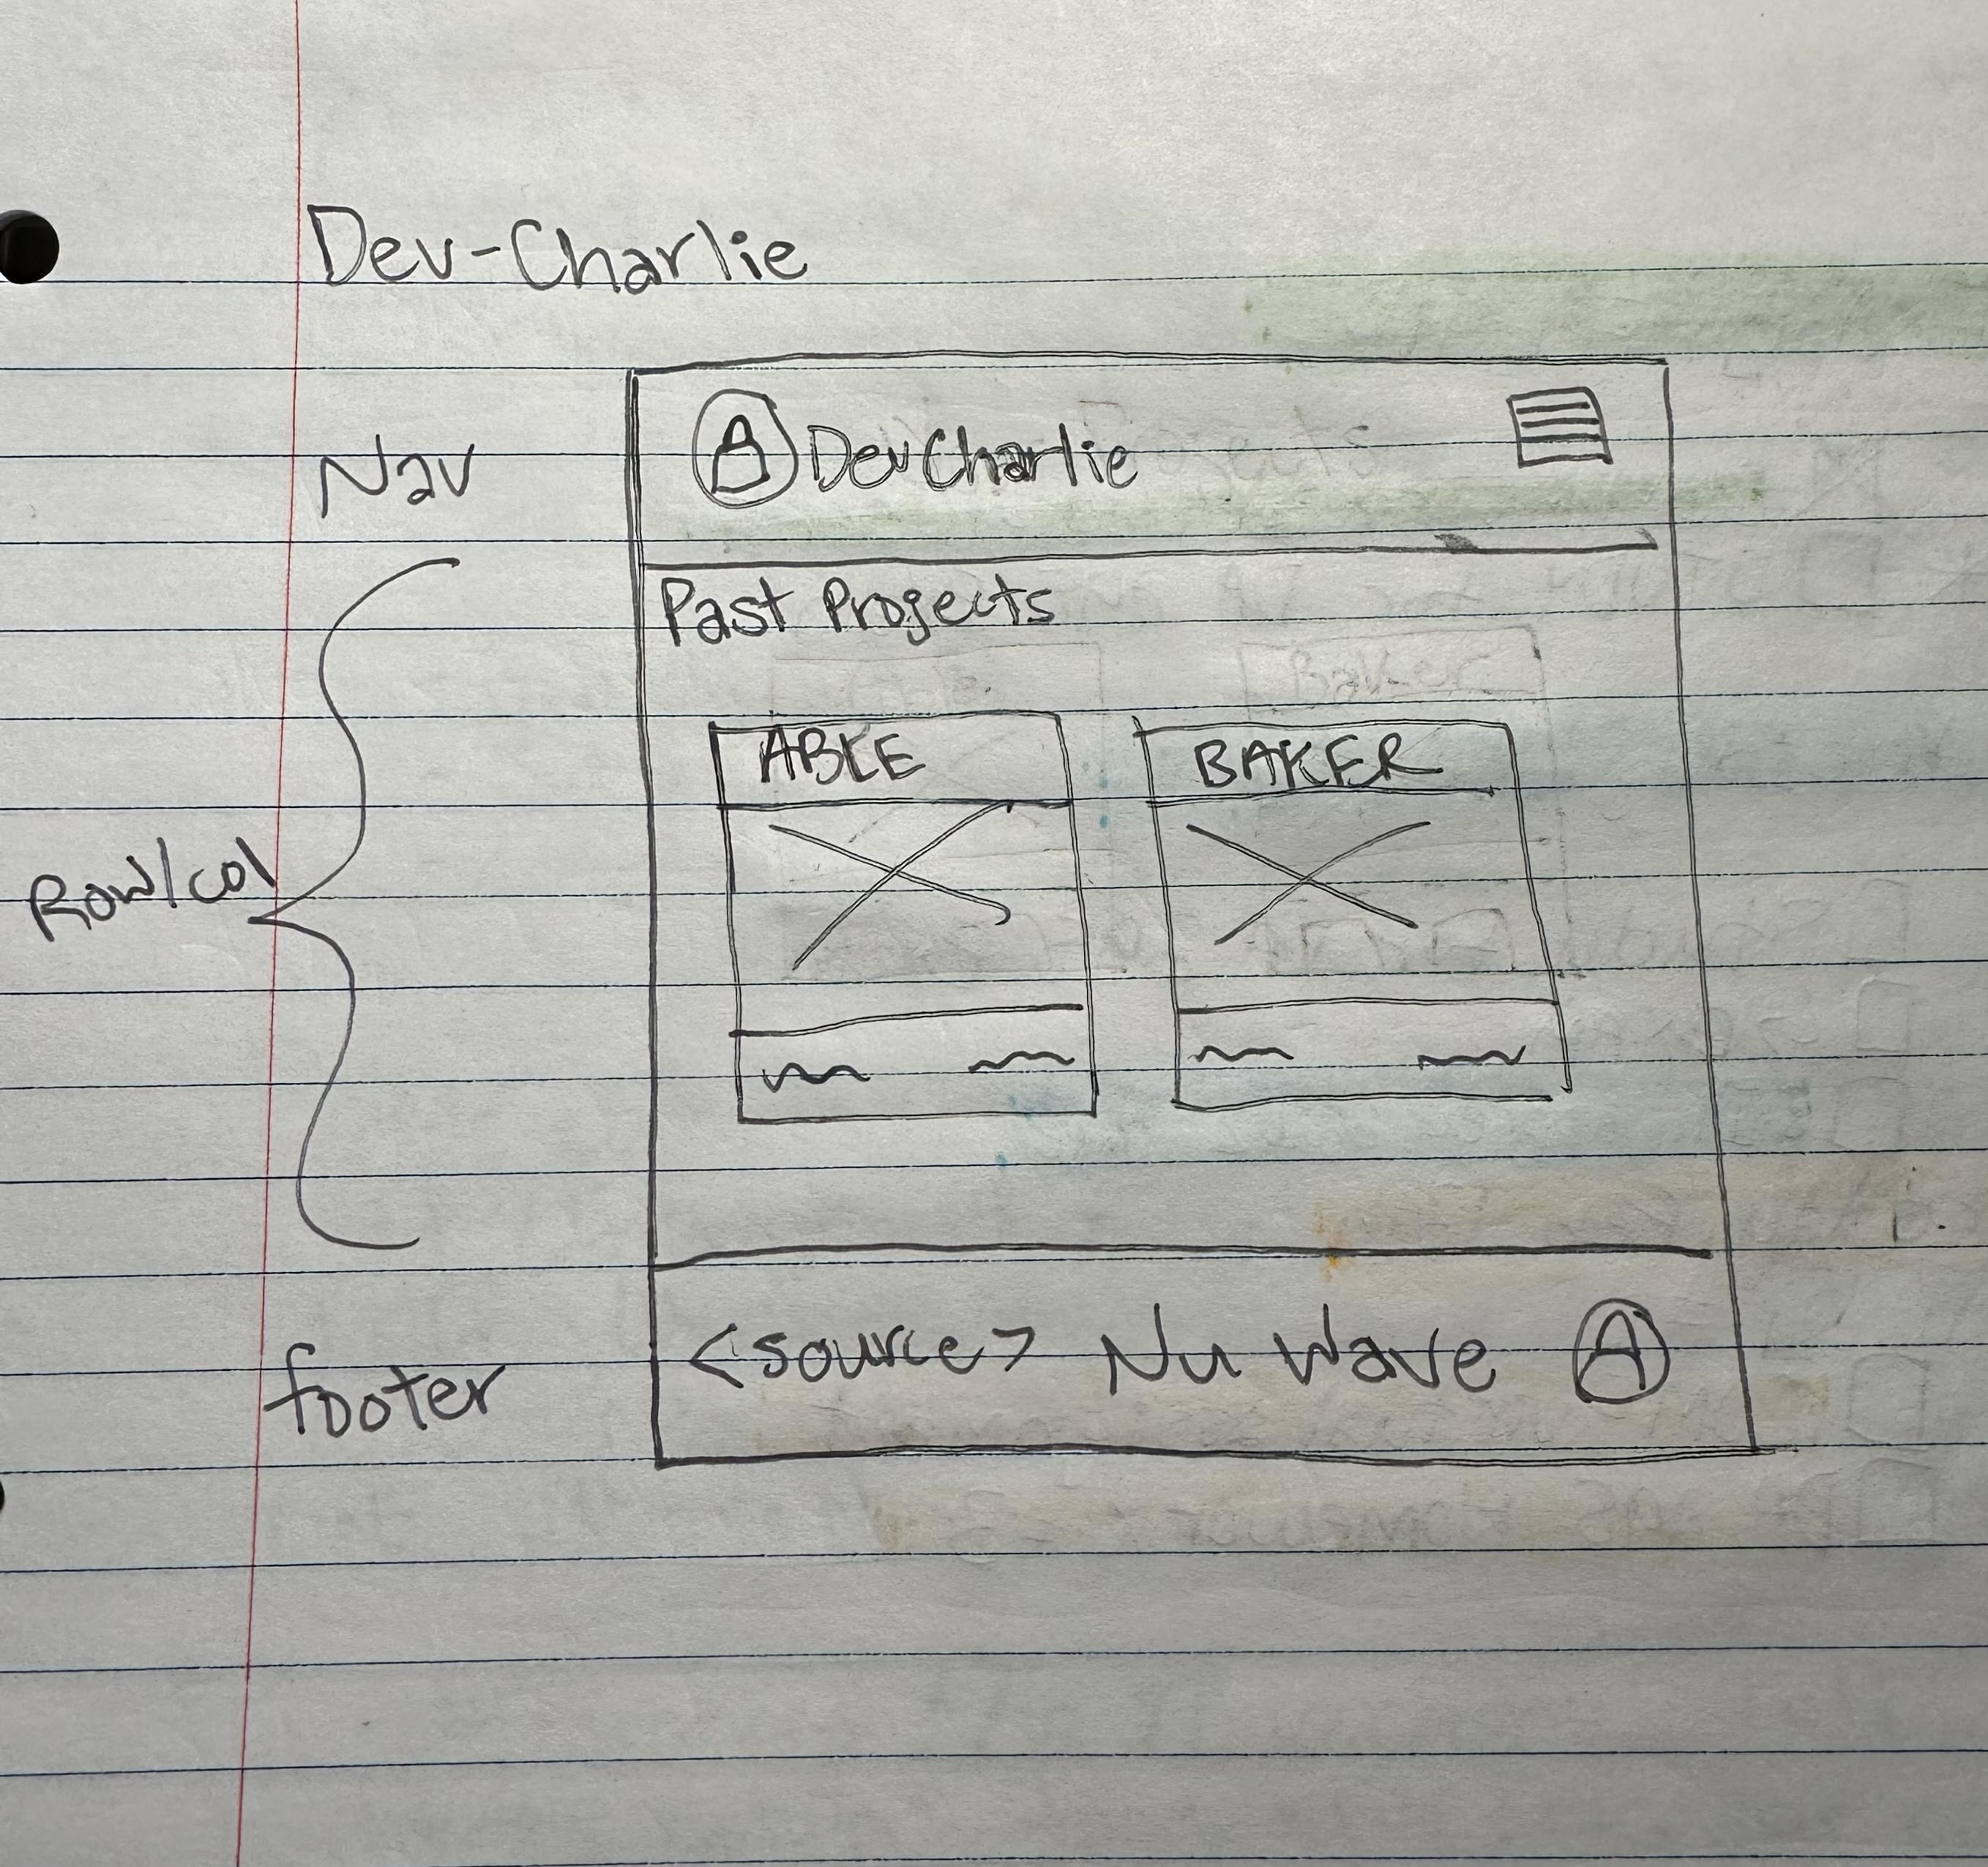 Dev-Charlie
Nav
DevCharlie
Past Projects
ABLE
BAKER
Row/col
footer
<source> Nu Wave A